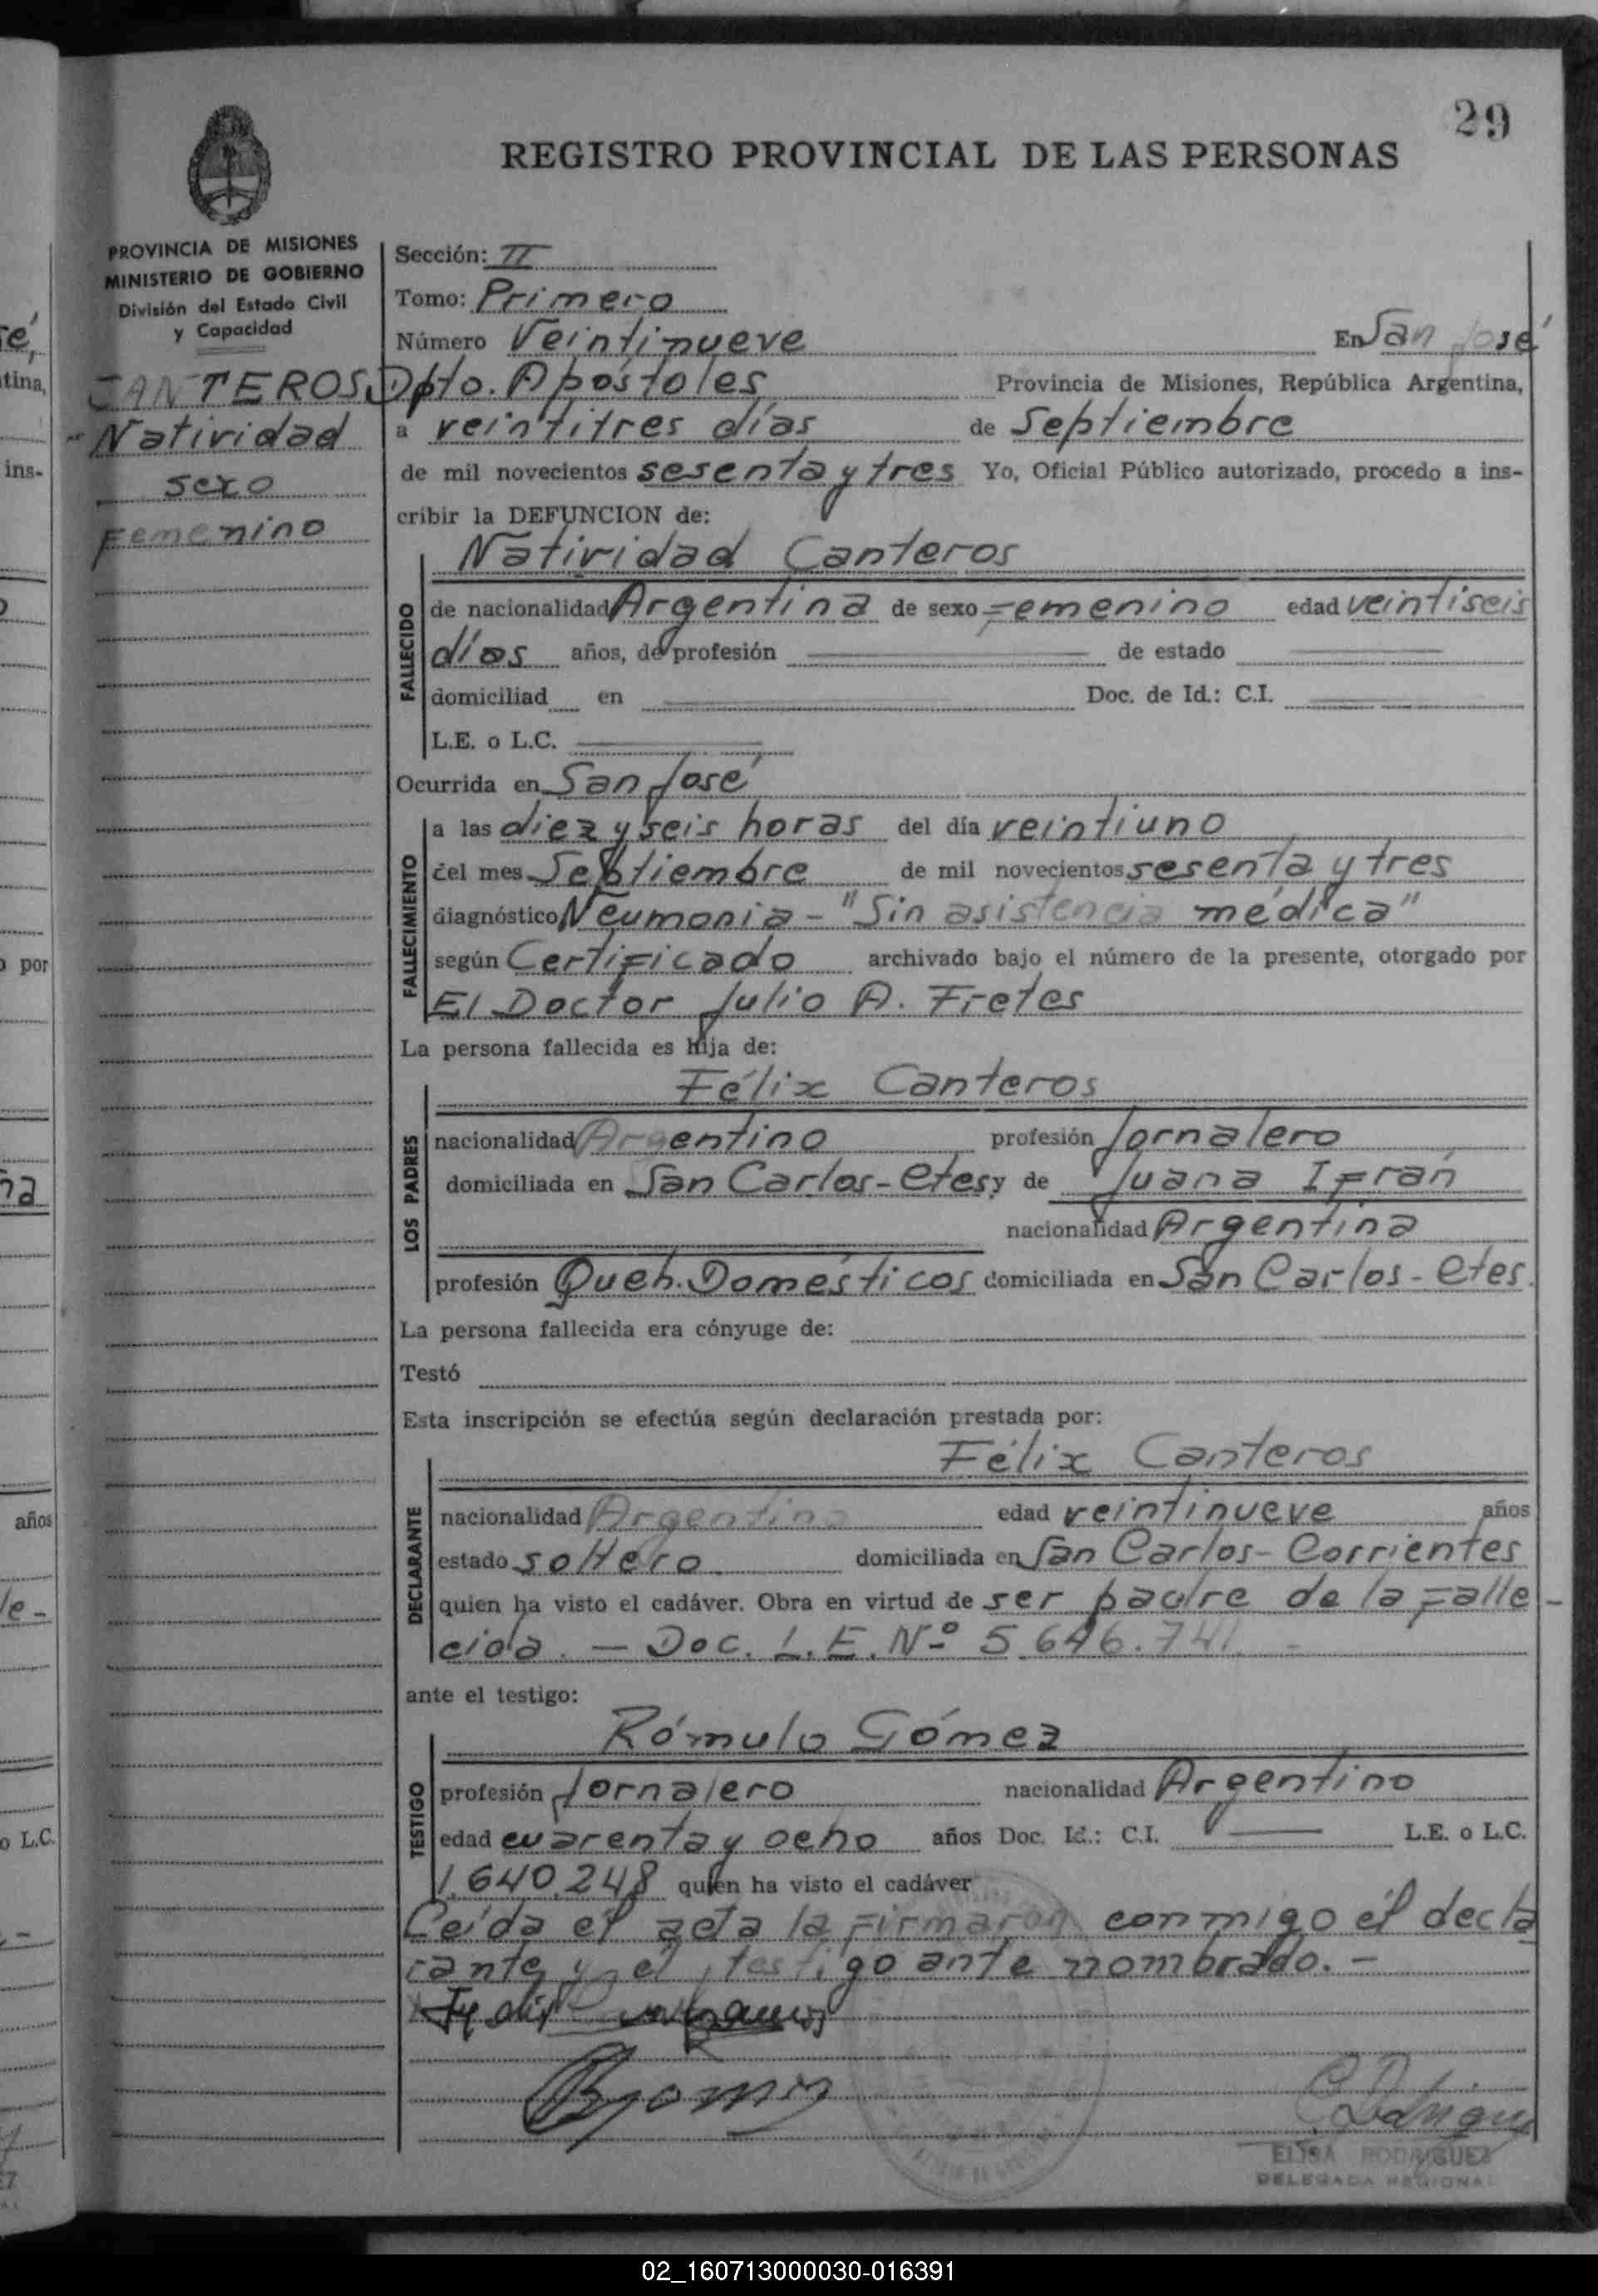 29
REGISTRO PROVINCIAL DE LAS PERSONAS
PROVINCIA DE MISIONES
MINISTERIO DE GOBIERNO
División del Estado Civil
y Capacidad
CANTEROS
Natividad
sexo
Femenino
Sección: II
Tomo: Primero
Número Veintinueve En San José
Dpto. Apóstoles Provincia de Misiones, República Argentina,
a veintitres días de Septiembre
de mil novecientos sesenta y tres Yo, Oficial Público autorizado, procedo a ins-
cribir la DEFUNCION de:
Natividad Canteros
FALLECIDO
de nacionalidad Argentina de sexo Femenino edad veintiseis
días años, de profesión de estado
domiciliad en Doc. de Id.: C.I.
L.E. o L.C.
Ocurrida en San José
FALLECIMIENTO
a las diez y seis horas del día veintiuno
del mes Septiembre de mil novecientos sesenta y tres
diagnóstico Neumonia - "Sin asistencia médica"
según Certificado archivado bajo el número de la presente, otorgado por
El Doctor Julio A. Fretes
La persona fallecida es hija de:
LOS PADRES
Félix Canteros
nacionalidad Argentino profesión Jornalero
domiciliada en San Carlos - Ctes y de Juana Ifrán
nacionalidad Argentina
profesión Queh. Domésticos domiciliada en San Carlos - Ctes.
La persona fallecida era cónyuge de:
Testó
Esta inscripción se efectúa según declaración prestada por:
DECLARANTE
Félix Canteros
nacionalidad Argentina edad veintinueve años
estado soltero domiciliada en San Carlos - Corrientes
quien ha visto el cadáver. Obra en virtud de ser padre de la falle-
cida. — Doc. L.E. Nº 5.646.741. -
ante el testigo:
TESTIGO
Rómulo Gómez
profesión Jornalero nacionalidad Argentino
edad cuarenta y ocho años Doc. Id.: C.I. L.E. o L.C.
1.640.248 quien ha visto el cadáver
Leída el acta la Firmaron conmigo el decla
rante y el testigo ante nombrado. -
ELISA RODRIGUEZ
DELEGADA REGIONAL
02_160713000030-016391